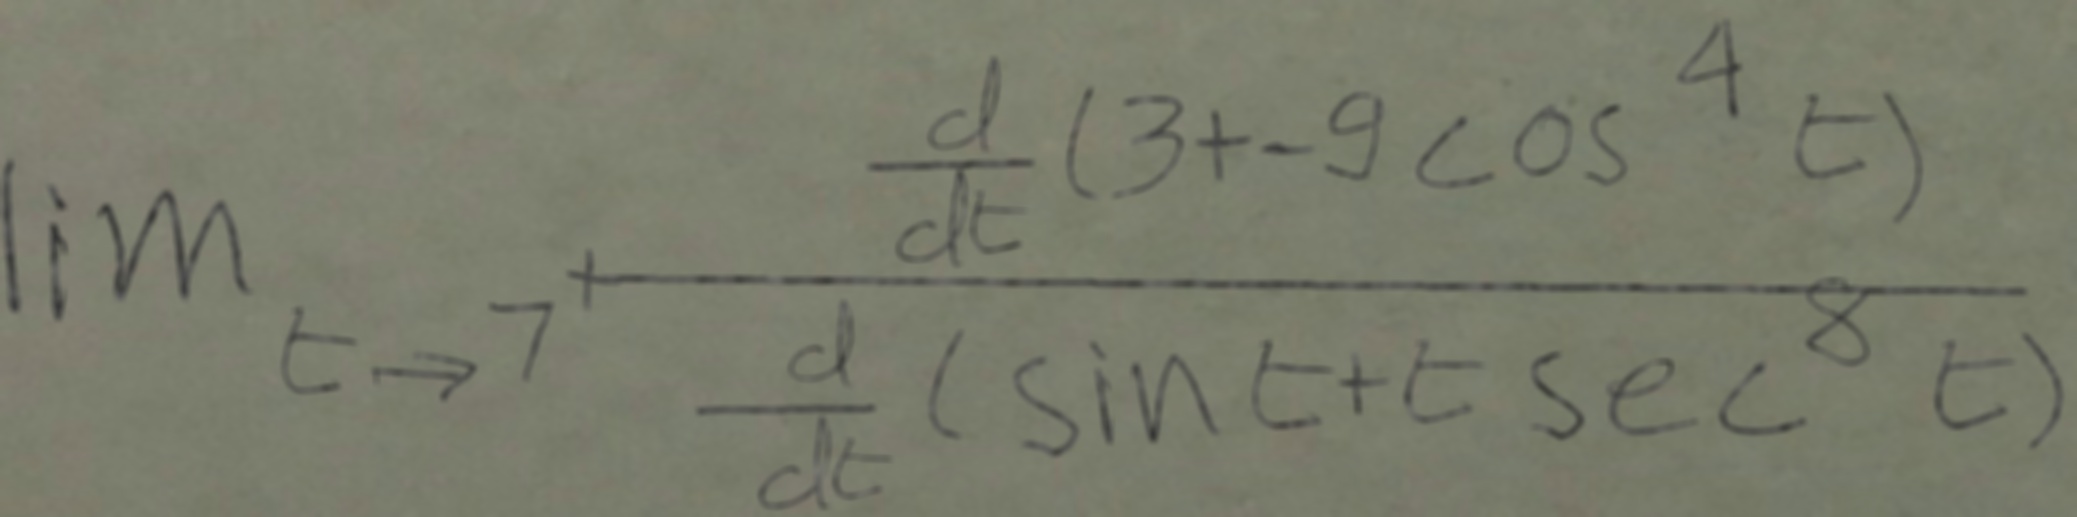 \lim_{t \to 7^+} \frac{\frac{d}{dt}(3+-9\cos^4 t)}{\frac{d}{dt}(\sin t+t\sec^8 t)}